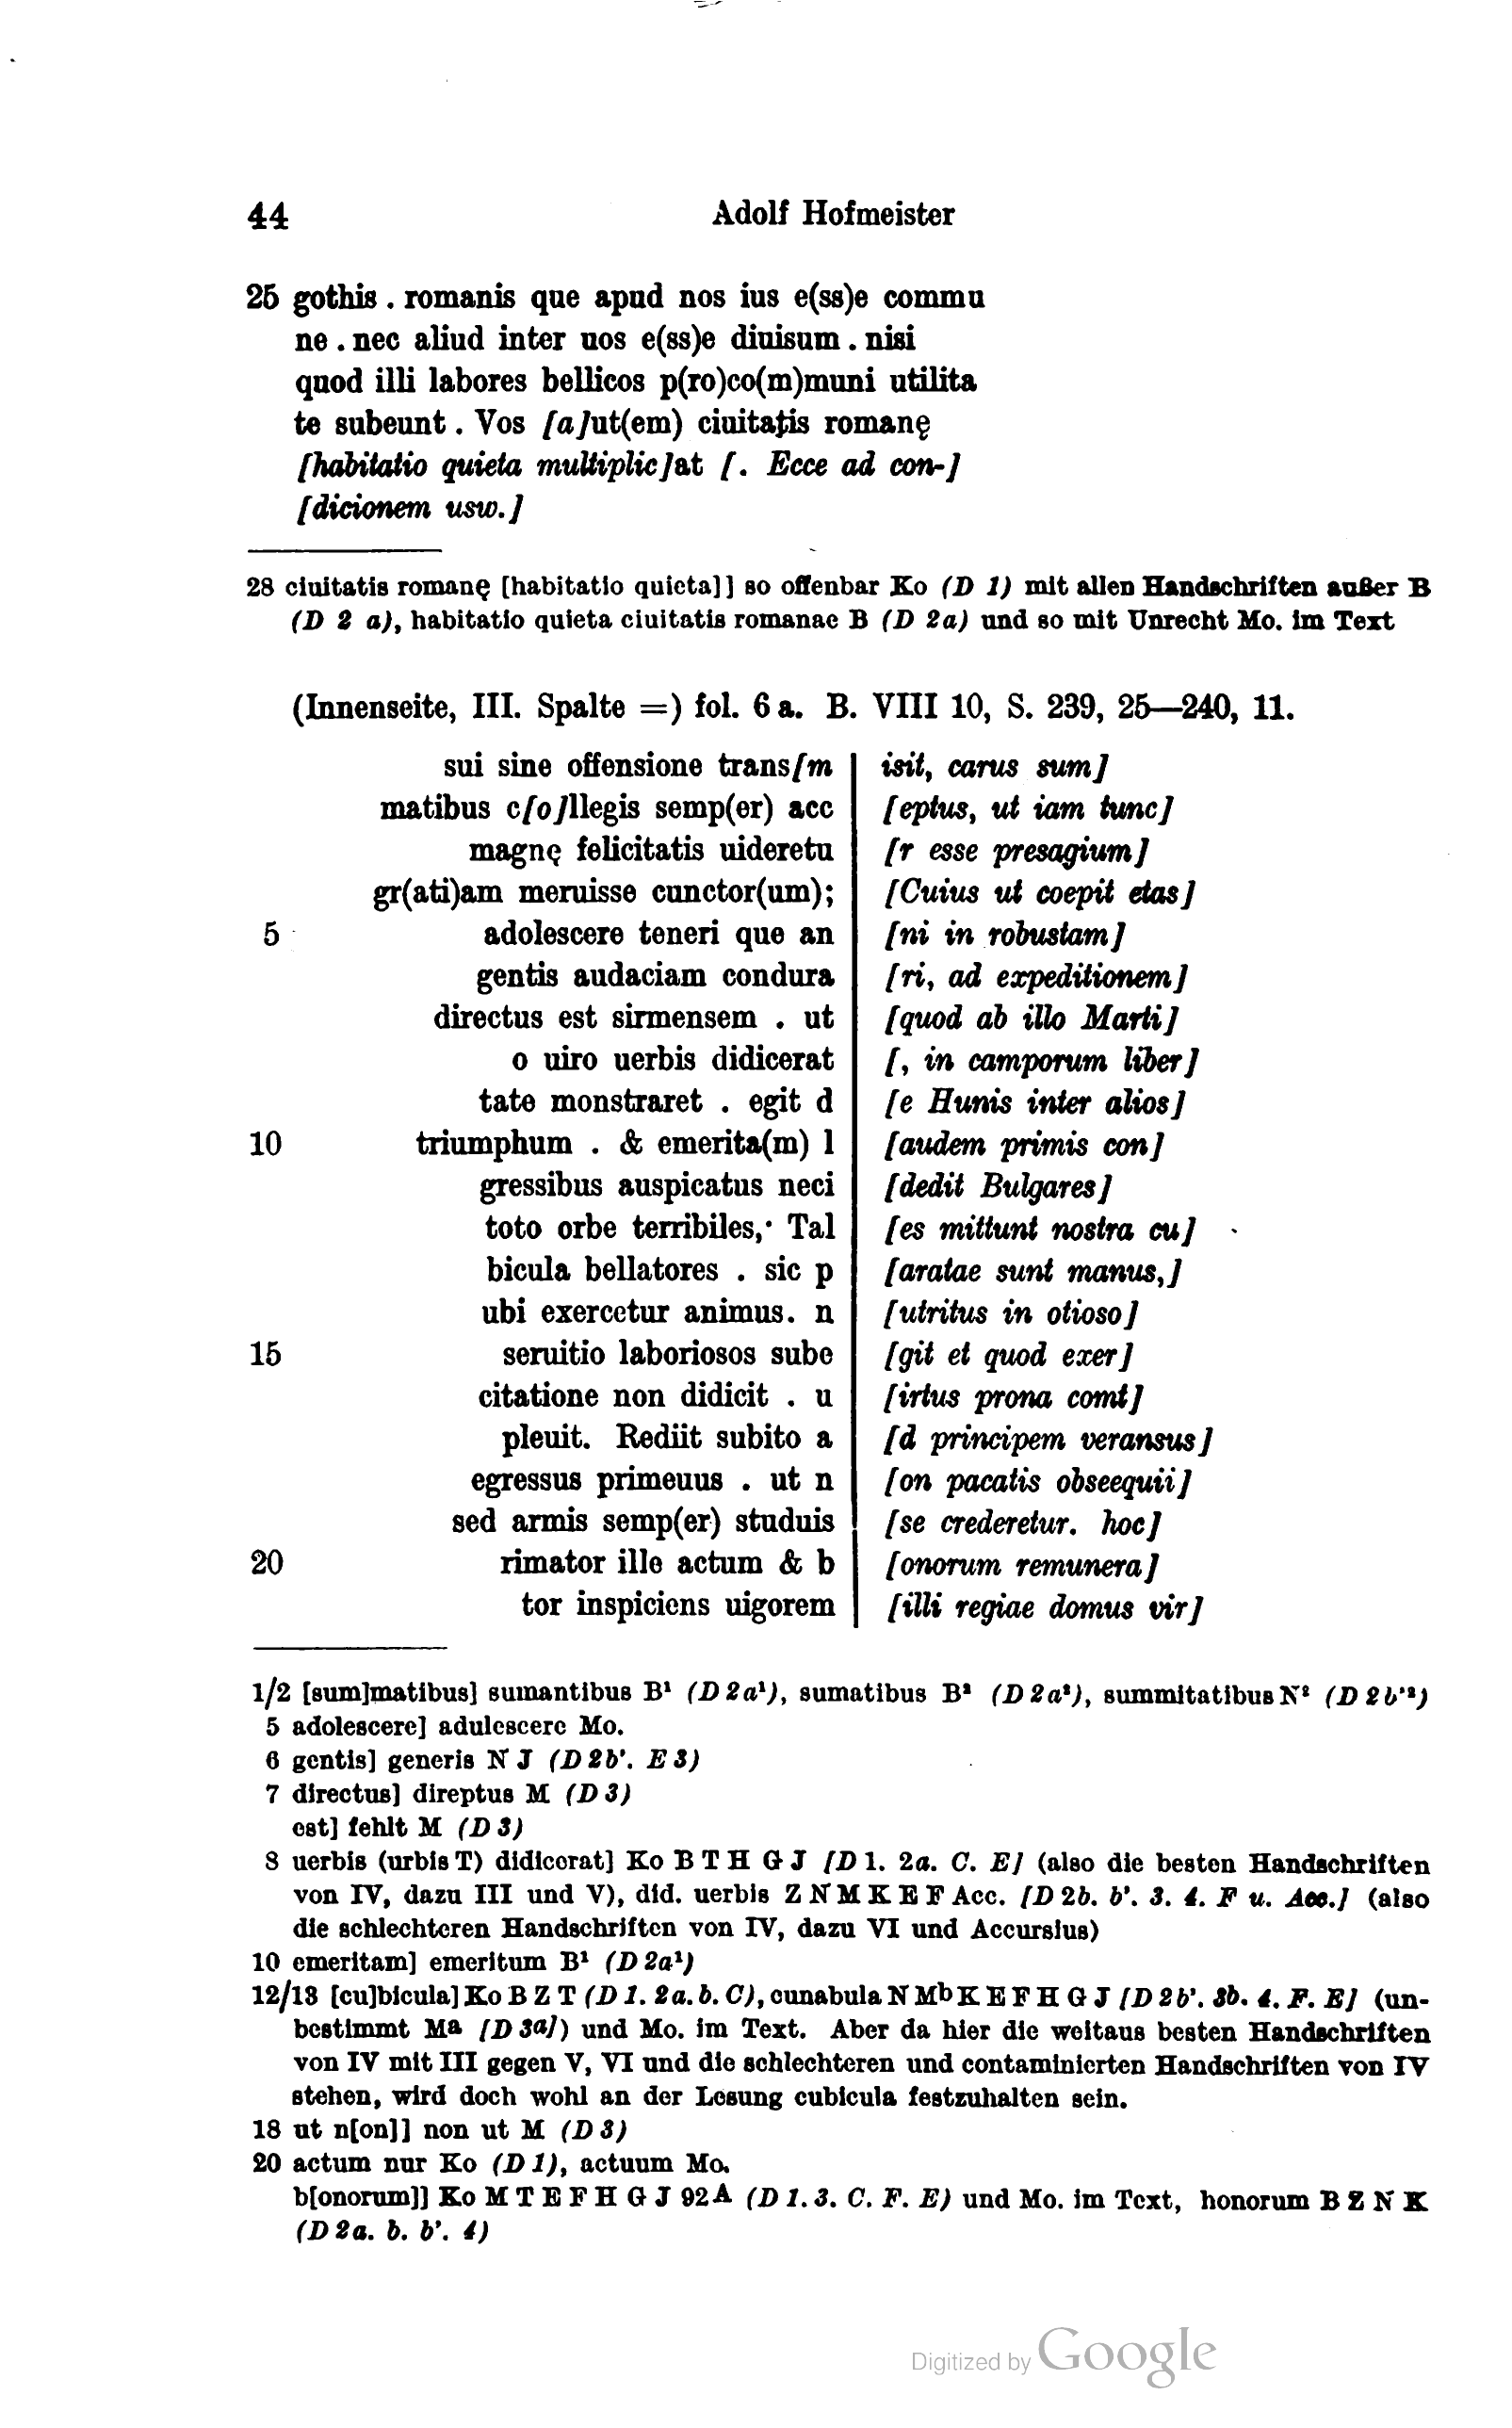 44 Adolf Hofmeister
25 gothis . romanis que apud nos ius e(ss)e commu
ne . nec aliud inter uos e(ss)e diuisum . nisi
quod illi labores bellicos p(ro)co(m)muni utilita
te subeunt . Vos [a]ut(em) ciuitatis romanę
[habitatio quieta multiplic]at [. Ecce ad con-]
[dicionem usw.]
28 ciuitatis romanę [habitatio quieta]] so offenbar Ko (D 1) mit allen Handschriften außer B
(D 2 a), habitatio quieta ciuitatis romanae B (D 2a) und so mit Unrecht Mo. im Text
(Innenseite, III. Spalte =) fol. 6 a. B. VIII 10, S. 239, 25—240, 11.
sui sine offensione trans[m | isit, carus sum]
matibus c[o]llegis semp(er) acc | [eptus, ut iam tunc]
magnę felicitatis uideretu | [r esse presagium]
gr(ati)am meruisse cunctor(um); | [Cuius ut coepit etas]
5 adolescere teneri que an | [ni in robustam]
gentis audaciam condura | [ri, ad expeditionem]
directus est sirmensem . ut | [quod ab illo Marti]
o uiro uerbis didicerat | [, in camporum liber]
tate monstraret . egit d | [e Hunis inter alios]
10 triumphum . & emerita(m) l | [audem primis con]
gressibus auspicatus neci | [dedit Bulgares]
toto orbe terribiles,· Tal | [es mittunt nostra cu]
bicula bellatores . sic p | [aratae sunt manus,]
ubi exercetur animus. n | [utritus in otioso]
15 seruitio laboriosos sube | [git et quod exer]
citatione non didicit . u | [irtus prona comt]
pleuit. Rediit subito a | [d principem veransus]
egressus primeuus . ut n | [on pacatis obseequii]
sed armis semp(er) studuis | [se crederetur. hoc]
20 rimator ille actum & b | [onorum remunera]
tor inspiciens uigorem | [illi regiae domus vir]
1/2 [sum]matibus] sumantibus B¹ (D 2a¹), sumatibus B² (D 2a²), summitatibus N² (D 2b'²)
5 adolescere] adulescere Mo.
6 gentis] generis N J (D 2b'. E 3)
7 directus] direptus M (D 3)
est] fehlt M (D 3)
8 uerbis (urbis T) didicerat] Ko B T H G J [D 1. 2a. C. E] (also die besten Handschriften
von IV, dazu III und V), did. uerbis Z N M K E F Acc. [D 2b. b'. 3. 4. F u. Acc.] (also
die schlechteren Handschriften von IV, dazu VI und Accursius)
10 emeritam] emeritum B¹ (D 2a¹)
12/13 [cu]bicula] Ko B Z T (D 1. 2a. b. C), cunabula N Mb K E F H G J [D 2b'. 3b. 4. F. E] (un-
bestimmt Ma [D 3a]) und Mo. im Text. Aber da hier die weitaus besten Handschriften
von IV mit III gegen V, VI und die schlechteren und contaminierten Handschriften von IV
stehen, wird doch wohl an der Lesung cubicula festzuhalten sein.
18 ut n[on]] non ut M (D 3)
20 actum nur Ko (D 1), actuum Mo.
b[onorum]] Ko M T E F H G J 92A (D 1. 3. C. F. E) und Mo. im Text, honorum B Z N K
(D 2a. b. b'. 4)
Digitized by Google